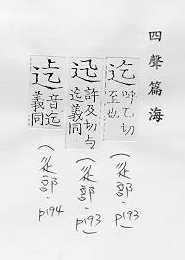 四聲篇海
迄
呼乞切
至也
(辵部.
P193)
迅
許及切与
迄義同
(辵部.
P193)
音迄
義同
(辵部.
P194)